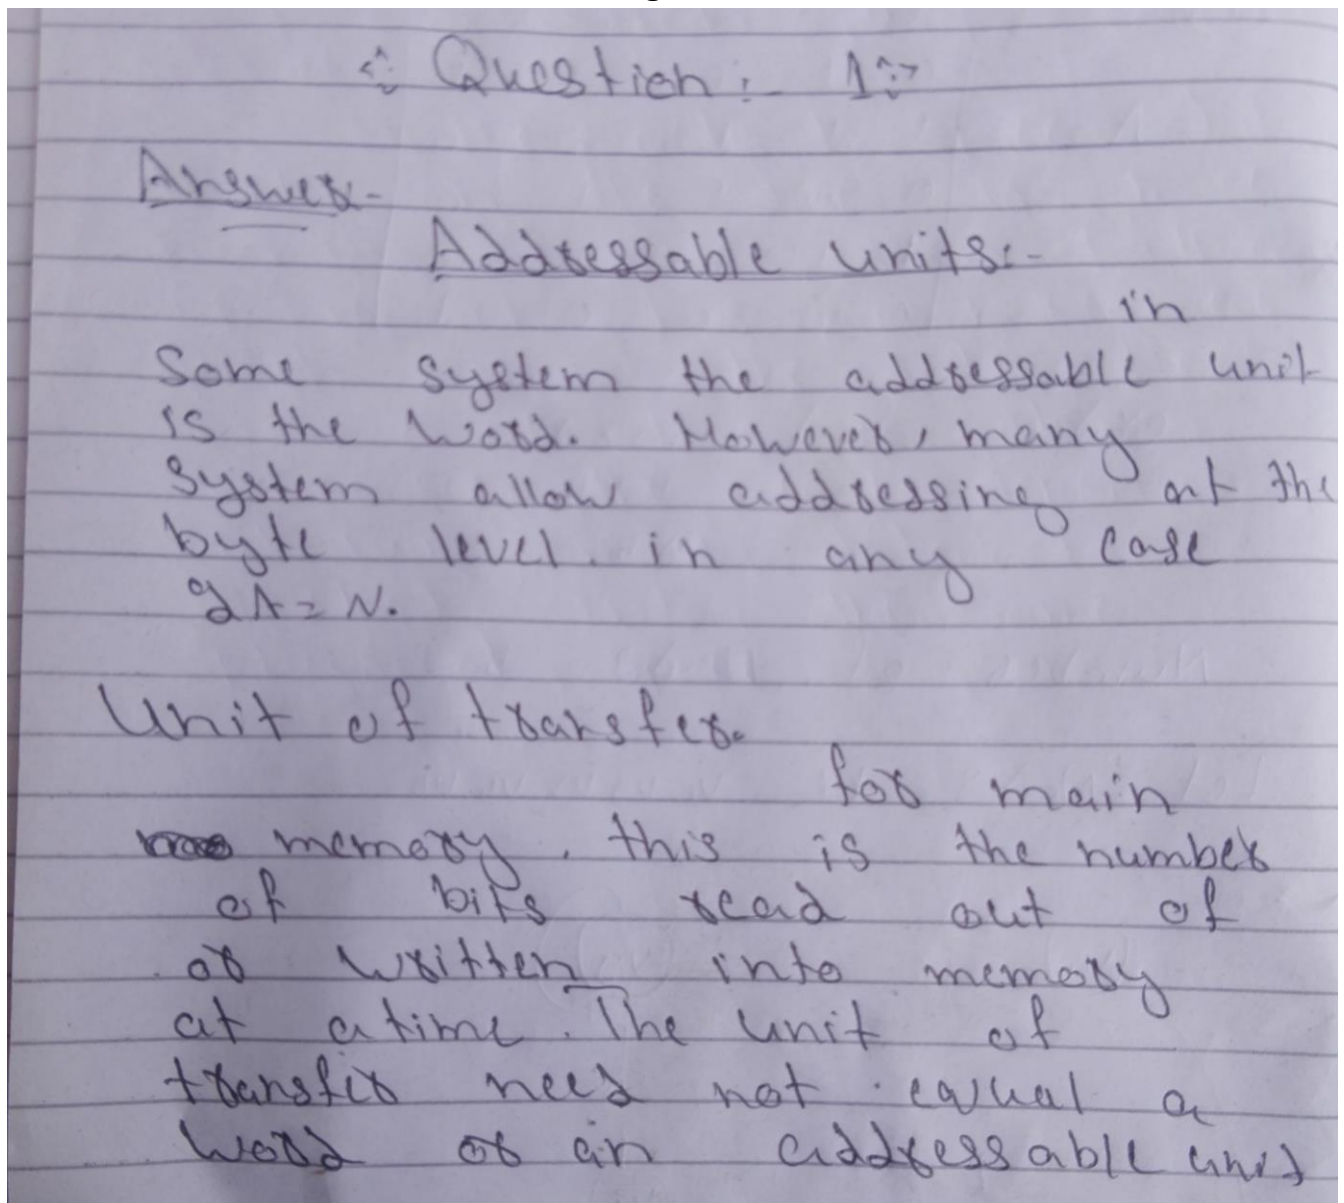 Question:- 1
Answer-
Addressable units:-
in
Some system the addressable unit
is the word. However, many
system allow addressing at the
byte level. in any case
2A = N.
Unit of transfer.
for main
memory. this is the number
of bits read out of
or written into memory
at a time. The unit of
transfer need not equal a
word or an addressable unit